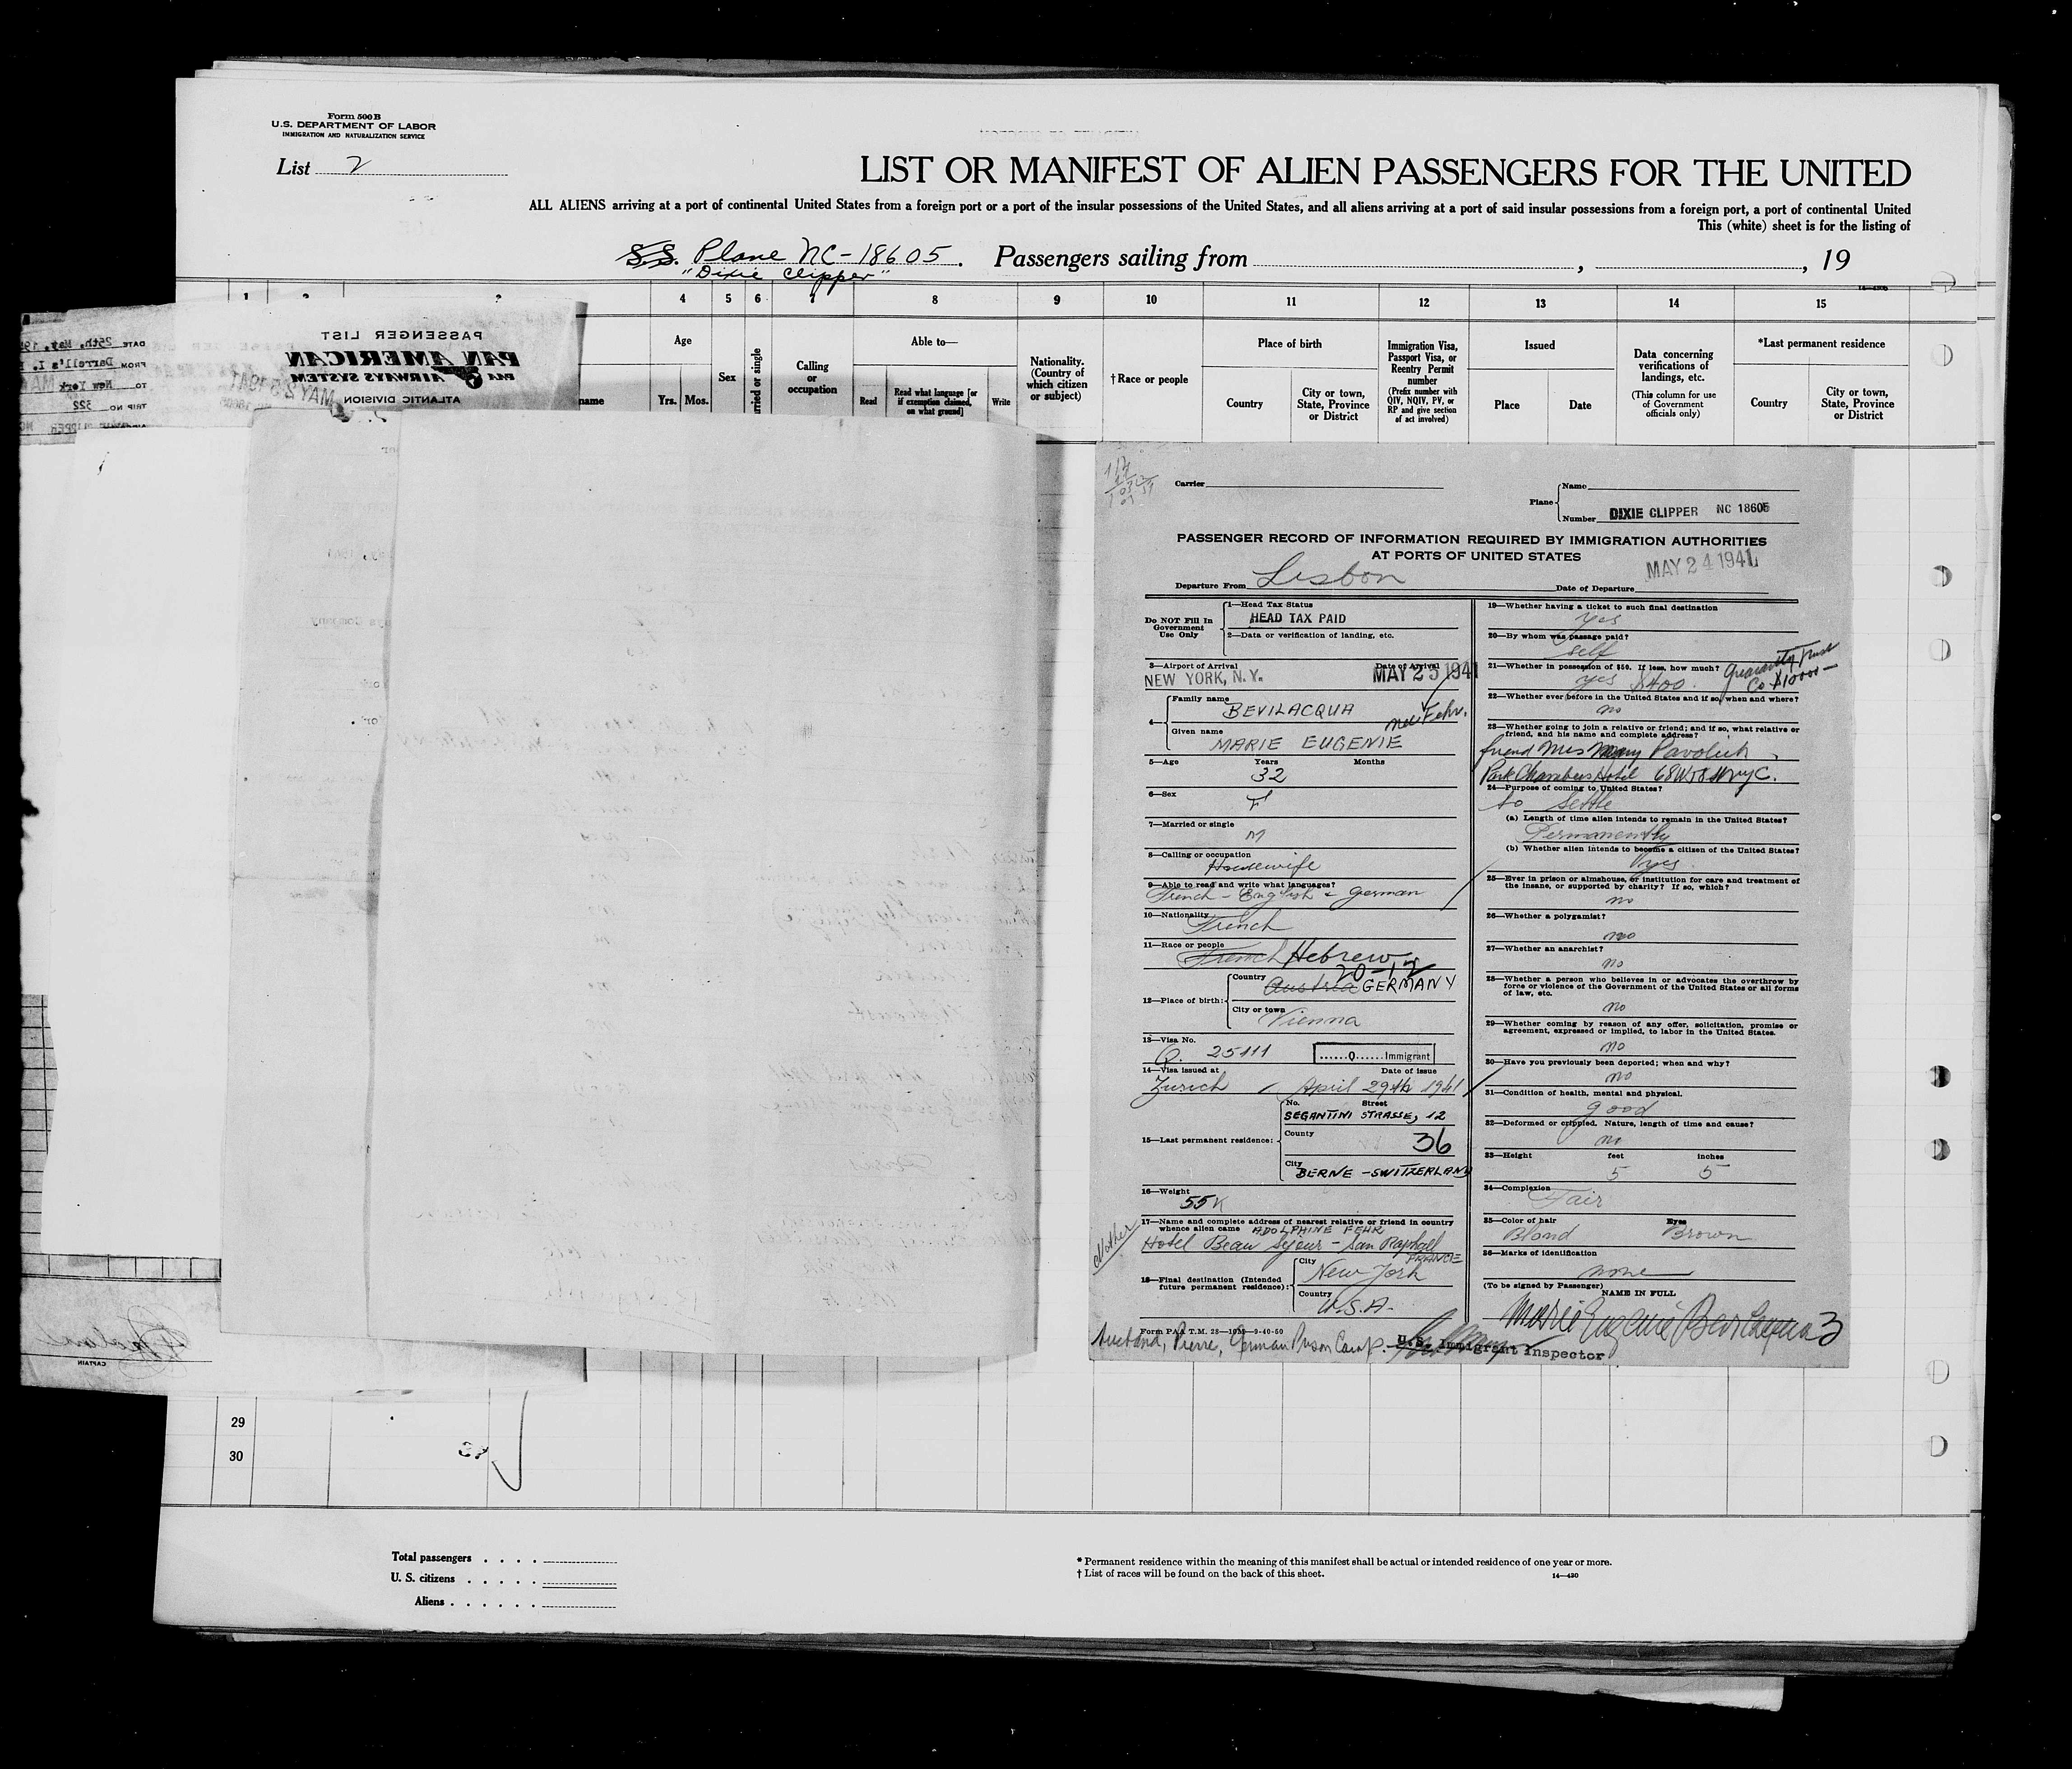 Form 500 B
U.S. DEPARTMENT OF LABOR
IMMIGRATION AND NATURALIZATION SERVICE
List 2
LIST OR MANIFEST OF ALIEN PASSENGERS FOR THE UNITED
ALL ALIENS arriving at a port of continental United States from a foreign port or a port of the insular possessions of the United States, and all aliens arriving at a port of said insular possessions from a foreign port, a port of continental United
This (white) sheet is for the listing of
S.S. Plane NC-18605. Passengers sailing from , , 19
"Dixie Clipper"
1 2 3 4 5 6 7 8 9 10 11 12 13 14 15
Age
Yrs. Mos.
Sex
Calling
or
occupation
Able to—
Read
Read what language [or
if exemption claimed,
on what ground]
Write
Nationality.
(Country of
which citizen
or subject)
†Race or people
Place of birth
Country
City or town,
State, Province
or District
Immigration Visa,
Passport Visa, or
Reentry Permit
number
(Prefix number with
QIV, NQIV, PV, or
RP and give section
of act involved)
Issued
Place
Date
Data concerning
verifications of
landings, etc.
(This column for use
of Government
officials only)
*Last permanent residence
Country
City or town,
State, Province
or District
PASSENGER LIST
PAN AMERICAN
AIRWAYS SYSTEM
ATLANTIC DIVISION
MAY 25 1941
DATE 25th. May, 19
FROM Darrell's I.
TO New York
TRIP NO. 322
CLIPPER
CAPTAIN
Carrier
Plane
Name
Number DIXIE CLIPPER NC 18605
PASSENGER RECORD OF INFORMATION REQUIRED BY IMMIGRATION AUTHORITIES
AT PORTS OF UNITED STATES
Departure From Lisbon Date of Departure MAY 24 1941
Do NOT Fill In
Government
Use Only
1—Head Tax Status
HEAD TAX PAID
2—Data or verification of landing, etc.
3—Airport of Arrival Date of Arrival
NEW YORK, N.Y. MAY 25 1941
4—
Family name
BEVILACQUA nee Fehr.
Given name
MARIE EUGENIE
5—Age Years Months
32
6—Sex
F
7—Married or single
M
8—Calling or occupation
Housewife
9—Able to read and write what languages?
French - English & German
10—Nationality
French
11—Race or people
French Hebrew
20-12
12—Place of birth:
Country
Austria GERMANY
City or town
Vienna
13—Visa No.
Q. 25111 Q Immigrant
14—Visa issued at Date of issue
Zurich April 29th 1941
15—Last permanent residence:
No. Street
SEGANTINI STRASSE, 12
County
36
City
BERNE - SWITZERLAND
16—Weight
55 K
17—Name and complete address of nearest relative or friend in country
whence alien came ADOLPHINE FEHR
Mother
Hotel Beau Sejour - San Raphael
FRANCE
18—Final destination (Intended
future permanent residence):
City
New York
Country
U.S.A.
Form PAA T.M. 28—10M—9-40-50
Husband, Pierre, German Prison Camp.
U.S. Immigrant Inspector
19—Whether having a ticket to such final destination
yes
20—By whom was passage paid?
self
21—Whether in possession of $50. If less, how much?
yes $400. Guaranty Trust
Co $10000—
22—Whether ever before in the United States and if so, when and where?
no
23—Whether going to join a relative or friend; and if so, what relative or
friend, and his name and complete address?
friend Mrs Mary Pavolich
Park Chambers Hotel 68 W 58 St NYC.
24—Purpose of coming to United States?
to settle
(a) Length of time alien intends to remain in the United States?
Permanently
(b) Whether alien intends to become a citizen of the United States?
yes
25—Ever in prison or almshouse, or institution for care and treatment of
the insane, or supported by charity? If so, which?
no
26—Whether a polygamist?
no
27—Whether an anarchist?
no
28—Whether a person who believes in or advocates the overthrow by
force or violence of the Government of the United States or all forms
of law, etc.
no
29—Whether coming by reason of any offer, solicitation, promise or
agreement, expressed or implied, to labor in the United States.
no
30—Have you previously been deported; when and why?
no
31—Condition of health, mental and physical.
good
32—Deformed or crippled. Nature, length of time and cause?
no
33—Height feet inches
5 5
34—Complexion
Fair
35—Color of hair Eyes
Blond Brown
36—Marks of identification
none
(To be signed by Passenger)
NAME IN FULL
Marie Eugenie Bevilacqua 3
29
30
Total passengers
U. S. citizens
Aliens
* Permanent residence within the meaning of this manifest shall be actual or intended residence of one year or more.
† List of races will be found on the back of this sheet.
14—430